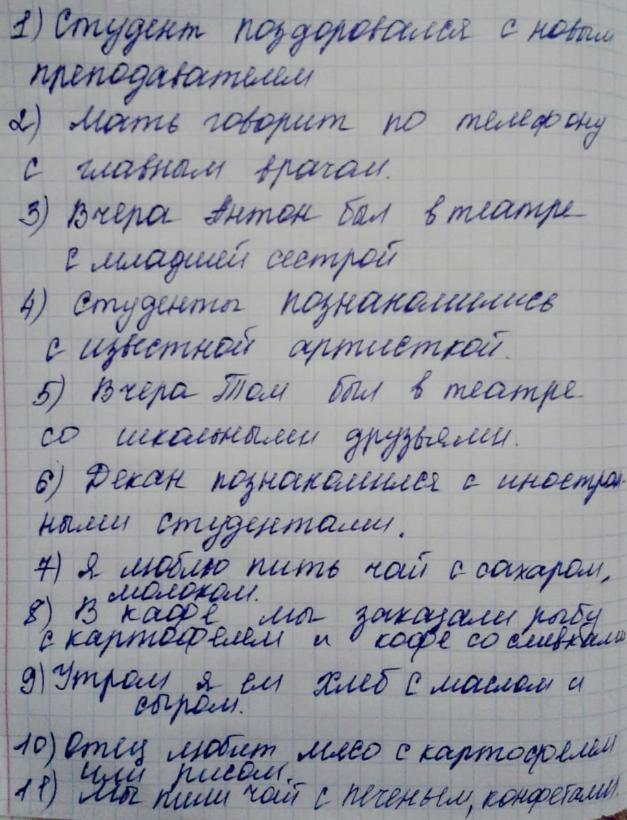 1) Студент поздоровался с новым
преподавателем
2) Мать говорит по телефону
с главным врачом.
3) Вчера Антон был в театре
с младшей сестрой
4) Студенты познакомились
с известной артисткой.
5) Вчера Том был в театре
со школьными друзьями.
6) Декан познакомился с иностран-
ными студентами.
7) Я люблю пить чай с сахаром,
молоком.
8) В кафе мы заказали рыбу
с картофелем и кофе со сливками
9) Утром я ем хлеб с маслом и
сыром.
10) Отец любит мясо с картофелем
или рисом.
11) Мы пили чай с печеньем, конфетами.